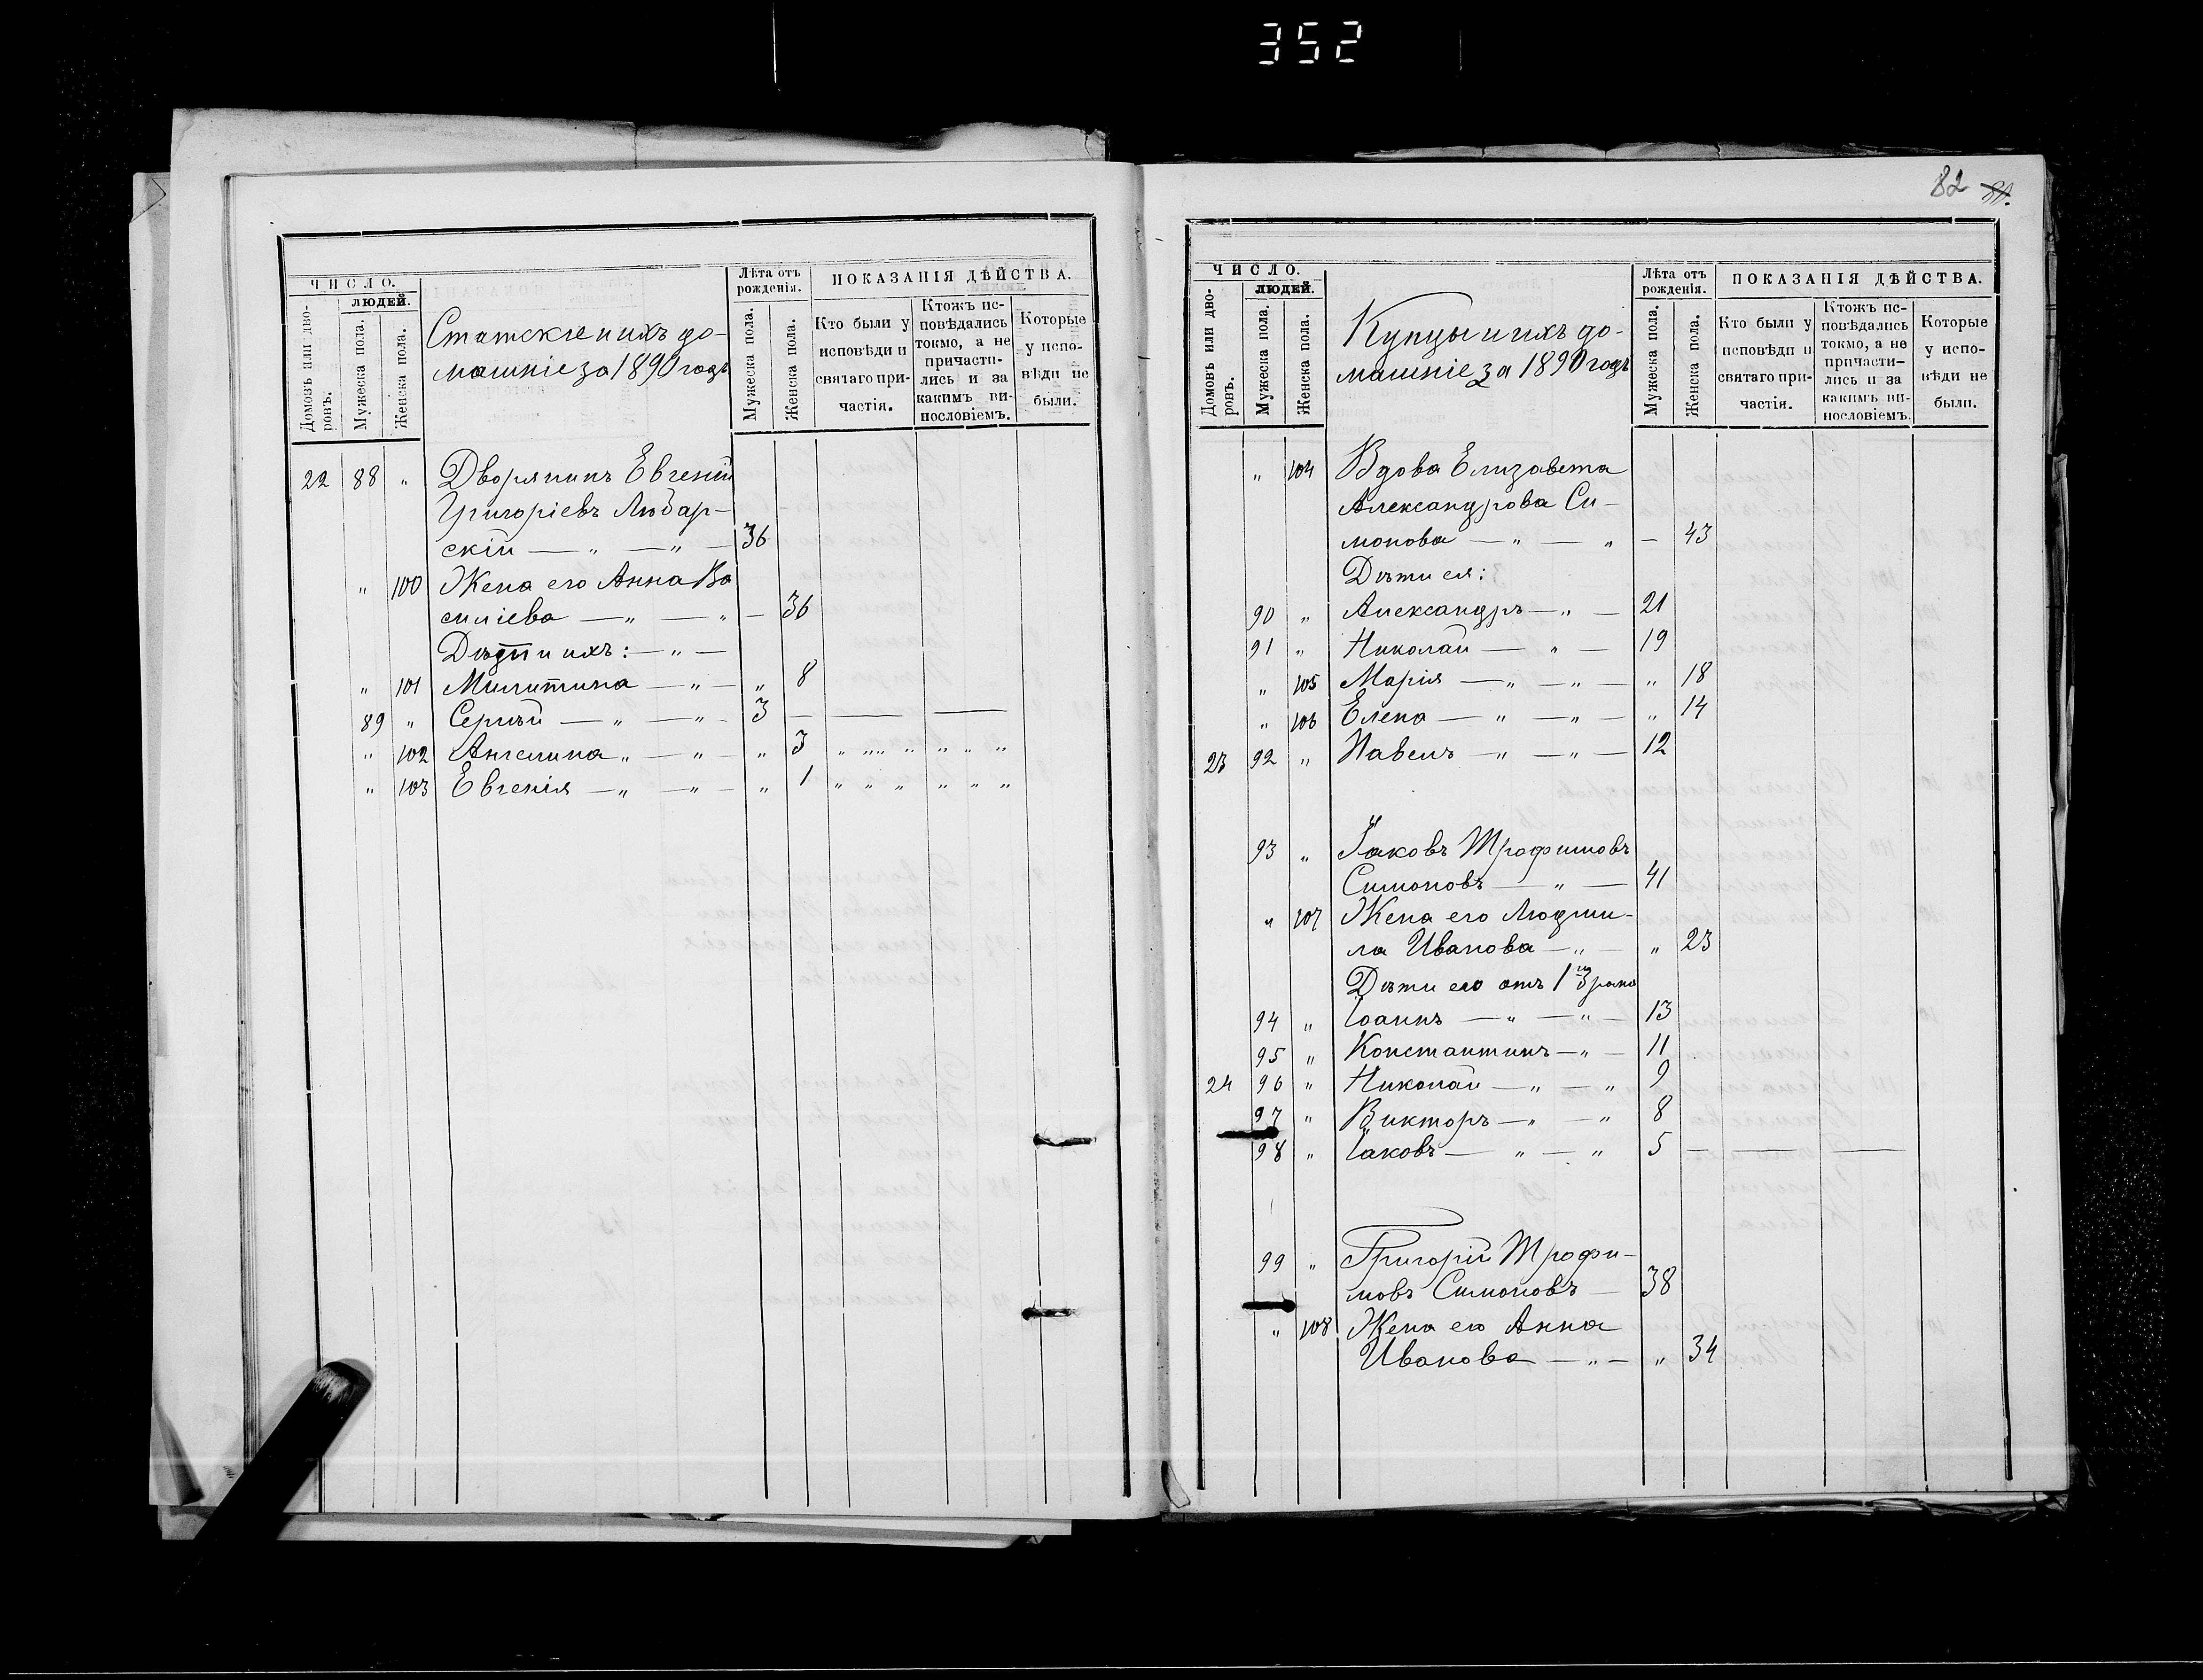 352
82 81.
ЧИСЛО.
Домовъ или дворовъ.
людей.
Мужеска пола.
Женска пола.
Статскіе и ихъ до-
машніе за 1890 годъ
Лѣта отъ рожденія.
Мужеска пола.
Женска пола.
ПОКАЗАНІЯ ДѢЙСТВА.
Кто были у исповѣди и святаго при-частія.
Ктожъ ис-повѣдались токмо, а не причасти-лись и за какимъ ви-нословіемъ.
Которые у испо-вѣди не были.
22 88 " Дворянинъ Евгеній
Григоріевъ Любар-
скій — " — " — 36
" 100 Жена его Анна Ва
силіева — " — " — 36
Дѣти ихъ: — " —
" 101 Милитина — " — " 8
89 " Сергѣй — " — " — 3 — — —
" 102 Ангелина " — " — " 3 " " " " " " "
" 103 Евгенія — " — " — " 1 " " " " " "
ЧИСЛО.
Домовъ или дво-ровъ.
людей.
Мужеска пола.
Женска пола.
Купцы и ихъ до-
машніе за 1890 годъ
Лѣта отъ рожденія.
Мужеска пола.
Женска пола.
ПОКАЗАНІЯ ДѢЙСТВА.
Кто были у исповѣди и святаго при-частія.
Ктожъ ис-повѣдались токмо, а не причасти-лись и за какимъ ви-нословіемъ.
Которые у испо-вѣди не были.
" 104 Вдова Елизавета
Александрова Си-
монова — " — " — 43
Дѣти ея:
90 " Александръ — " — 21
91 " Николай — " — 19
" 105 Марія — " — " — " 18
" 106 Елена — " — " — " 14
23 92 " Павелъ — " — " — 12
93 " Іаковъ Трофимовъ
Симоновъ — " — 41
" 107 Жена его Людми-
ла Иванова — " — " 23
Дѣти его отъ 1го брака
94 " Іоаннъ — " — " — 13
95 " Константинъ — " — 11
24 96 " Николай — " — " 9
97 " Викторъ — " — " 8
98 " Іаковъ — " — " 5 — — —
99 " Григорій Трофи-
мовъ Симоновъ — 38
" 108 Жена его Анна
Иванова — " — " 34